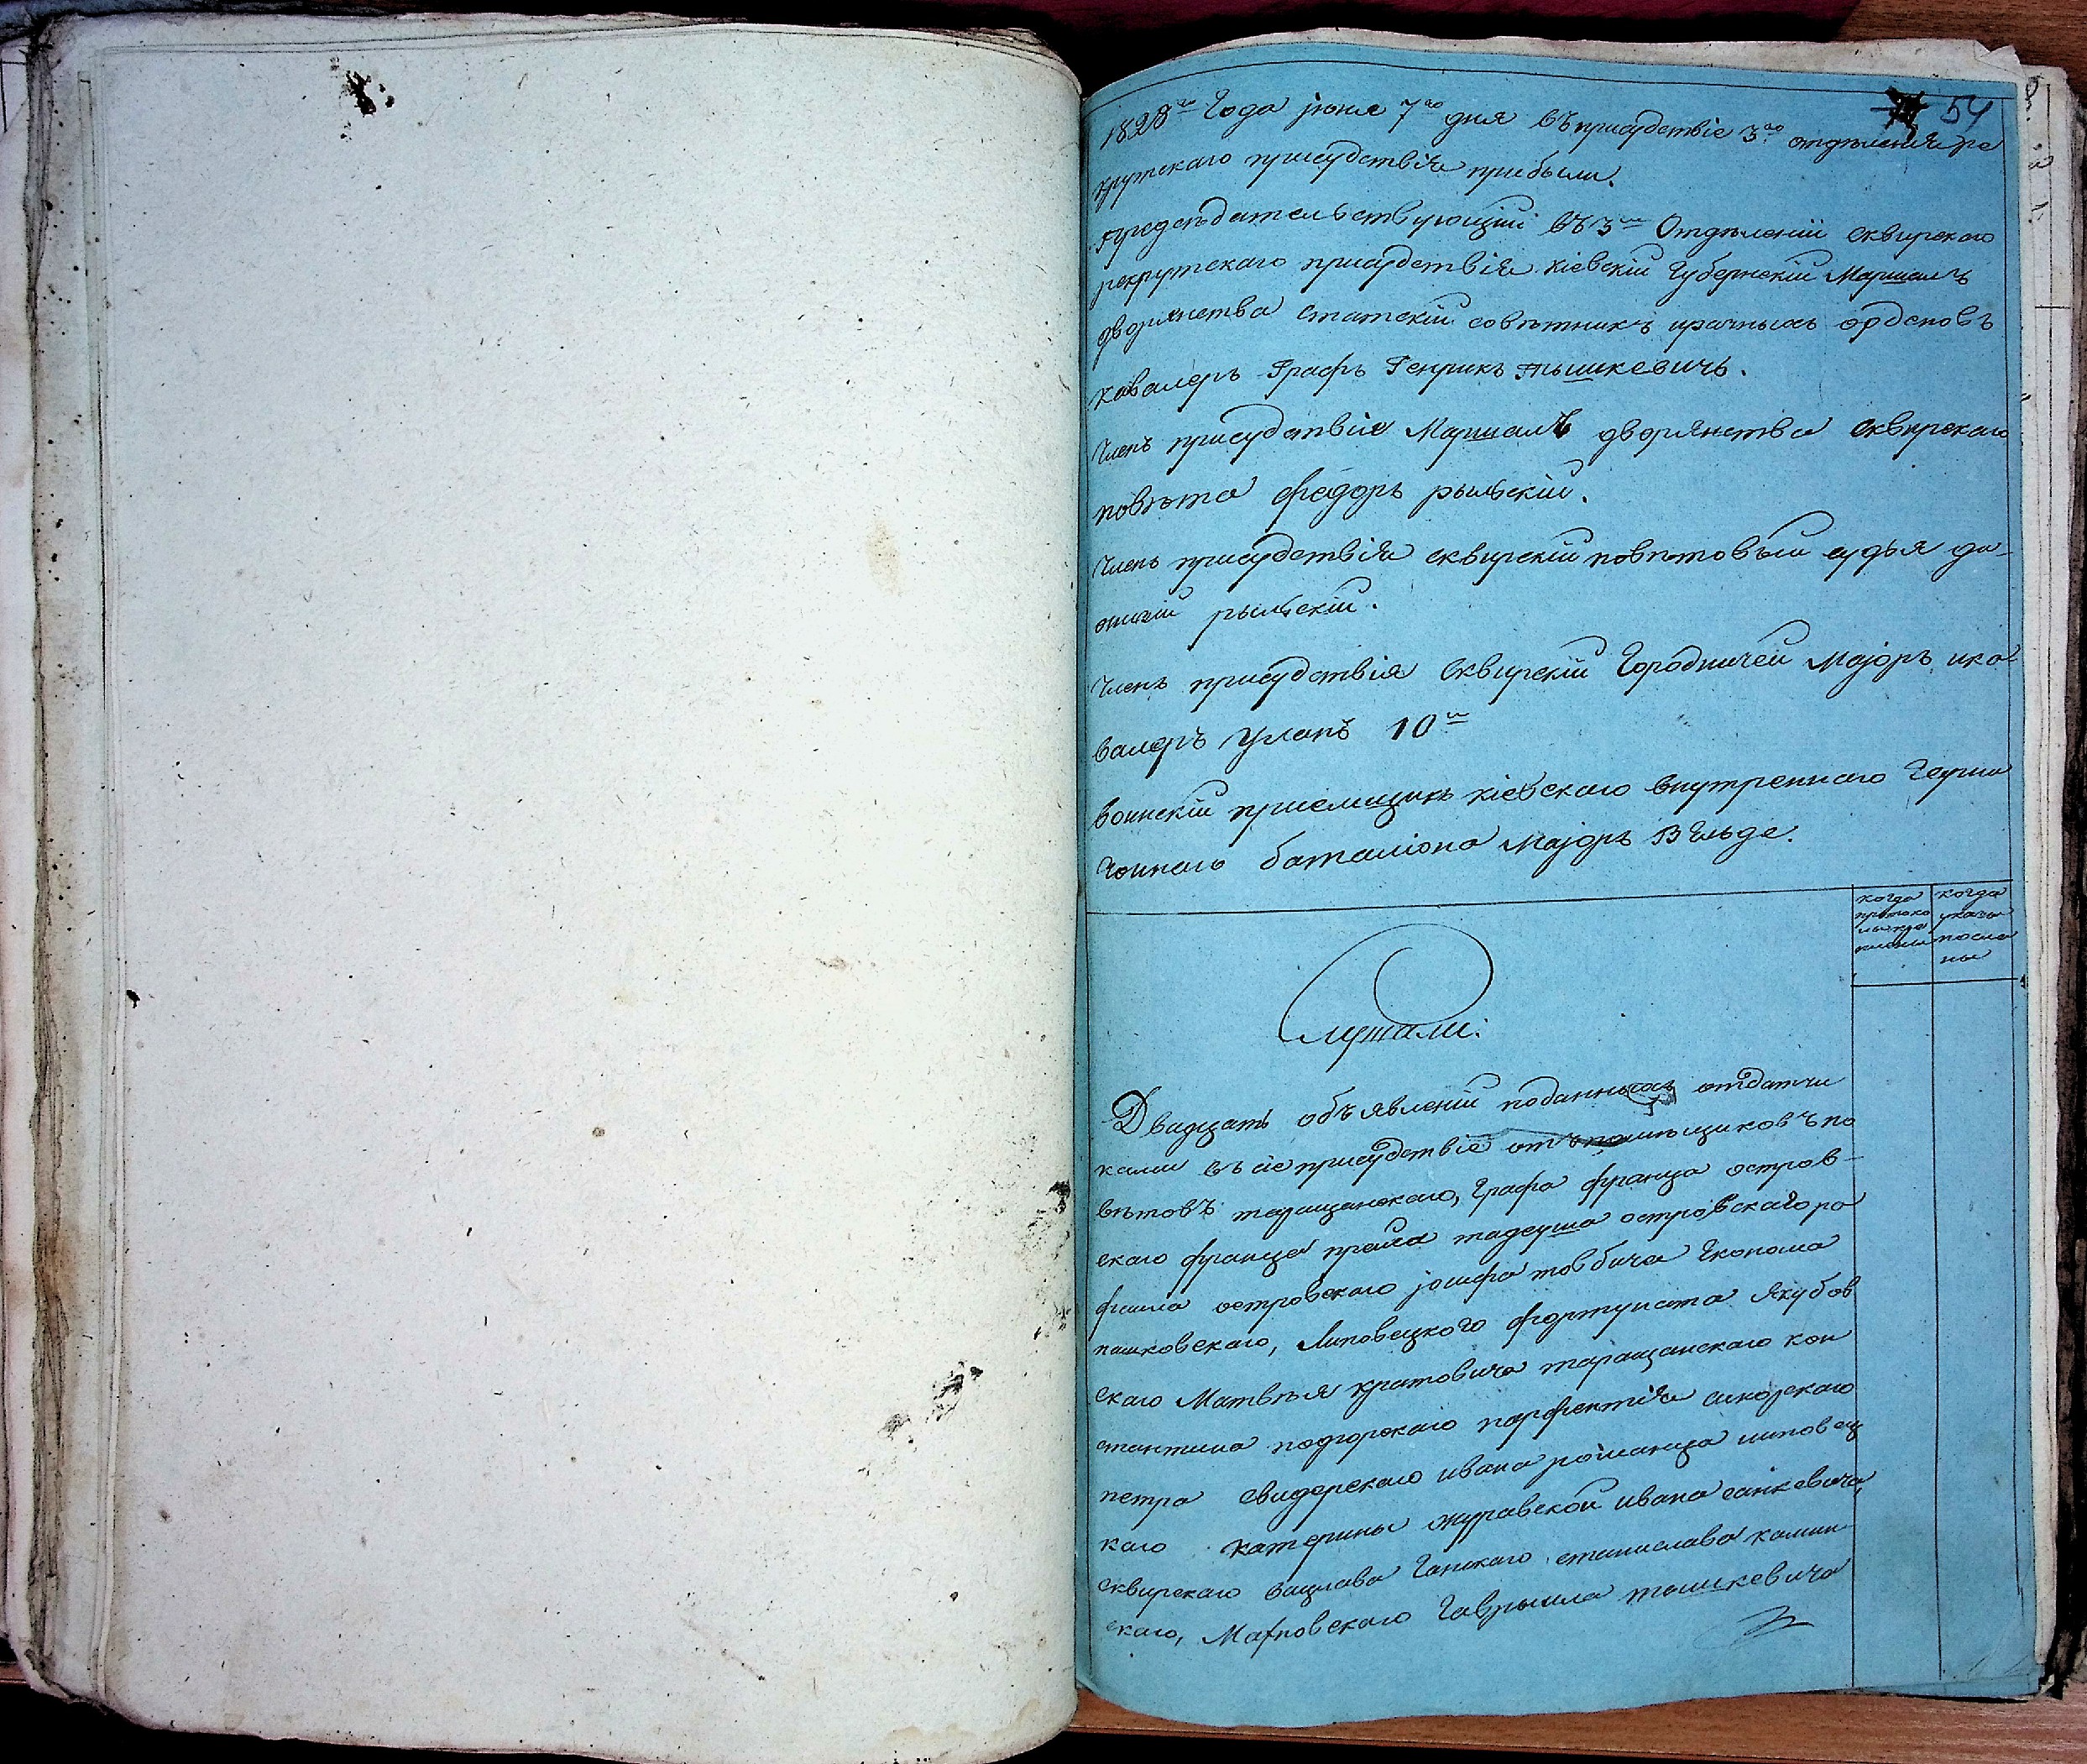 54
1828го Года июня 7го дня въ присудствіе 3го отдѣленія ре
крутскаго присудствія прибыли.
Предсѣдательствующій въ 3м Отдѣленіи сквирскаго
рекрутскаго присудствія кіевскій Губернскій Маршалъ
дворянства статскій совѣтникъ ирачныхъ орденовъ
кавалеръ Графъ Генрикъ Тышкевичъ.
Членъ присудствія Маршалъ дворянства сквирскаго
повѣта федоръ рыльскій.
Членъ присудствія сквирскій повѣтовый судья ди
рыльскій.
Членъ присудствія Сквирскій Городничей Маіоръ ика
валеръ Уланъ 10й
воинскій приемщикъ кіевскаго внутренняго Гарни
зоннаго баталіона маіоръ Вельде.
когда
протоко
когда
указы
посла
ны
Слушали:
Двадцать объявленій поданныхъ отдатчи
ками въ сіе присудствіе отъ помѣщиковъ по
вѣтовъ таращанскаго, Графа франца остров-
скаго франца тадеуша островскаго ра
фаила островскаго іосифа товбича Економа
пашковскаго, Липовецкого фортуната Якубов
скаго Матвѣя кратовича таращанскаго кон
стантина подгорскаго парфентія сикорскаго
петра свидерскаго ивана романца липовец
каго катерины журавской ивана
сквирскаго вацлава Ганскаго станислава камин
скаго, Махновскаго Гаврыила тышкевича